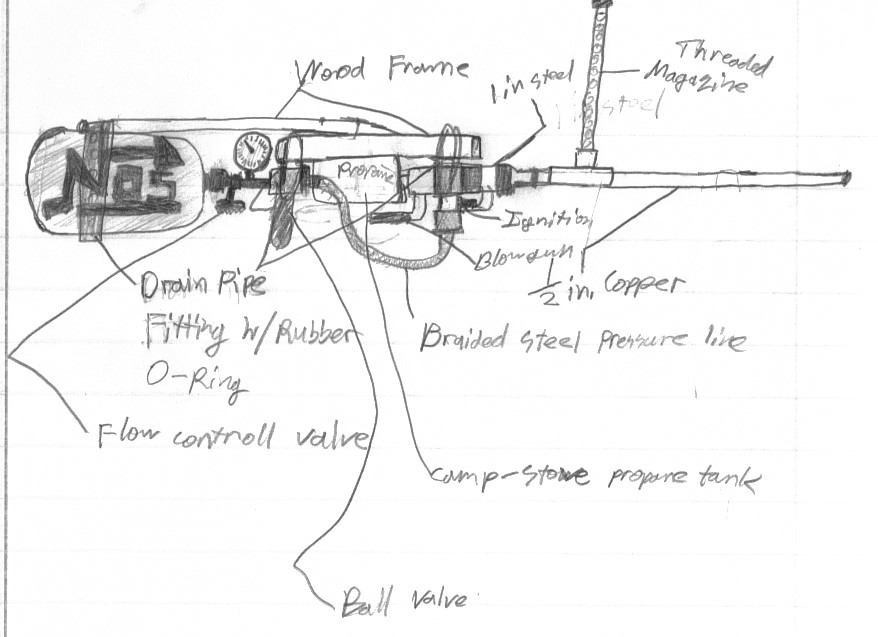 Wood Frame
1in steel
Threaded
Magazine
steel
Nos
Propane
Ignition
Blowgun
1/2 in. Copper
Drain Pipe
Fitting w/Rubber
O-Ring
Braided steel pressure line
Flow controll valve
Camp-stove propane tank
Ball valve